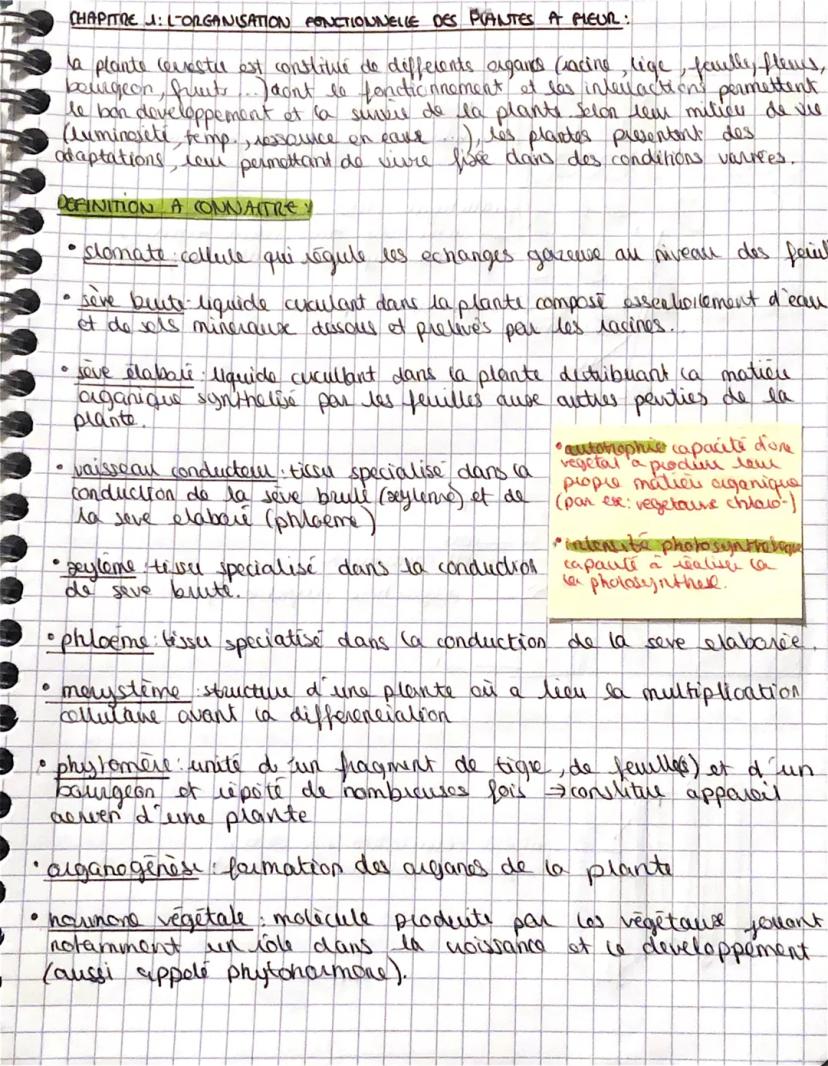 CHAPITRE 1: L'ORGANISATION FONCTIONNELLE DES PLANTES A FLEUR:
la plante terrestre est constitué de differents organes (racine, tige, feuille, fleurs,
bourgeon, fruits ...) dont le fonctionnement et les interactions permettent
le bon developpement et la survie de la plante. Selon leur milieu de vie
(luminosité, temp., ressource en eaux ...), les plantes presentent des
adaptations, leur permettant de vivre fixée dans des conditions variées.
DEFINITION A CONNAITRE
• stomate: cellule qui régule les echanges gazeux au niveau des feuil
• sève brute: liquide circulant dans la plante composé essentiellement d'eau
et de sels mineraux dissous et prelevés par les racines.
• sève élaboré: liquide circullant dans la plante distribuant la matière
organique synthetisé par les feuilles aux autres parties de la
plante.
• vaisseau conducteur: tissu specialisé dans la
conduction de la sève brute (xylème) et de
la seve elaboré (phloème)
• xylème: tissu specialisé dans la conduction
de seve brute.
• autotrophie capacité d'une
vegetal a produire leur
propre matière organique
(par ex: vegetaux chloro-)
• intensité photosynthetique
capacité à réaliser la
la photosynthese.
• phloème: tissu specialisé dans la conduction de la seve elaborée.
• meristème: structure d'une plante où a lieu la multiplication
cellulaire avant la differenciation
• phytomère: unité d'un fragment de tige, de feuille(s) et d'un
bourgeon et répété de nombreuses fois → constitue appareil
aerien d'une plante
• organogénèse: formation des organes de la plante
• hormone végétale: molécule produite par les végétaux jouant
notamment un rôle dans la croissance et le developpement
(aussi appelé phytohormone).